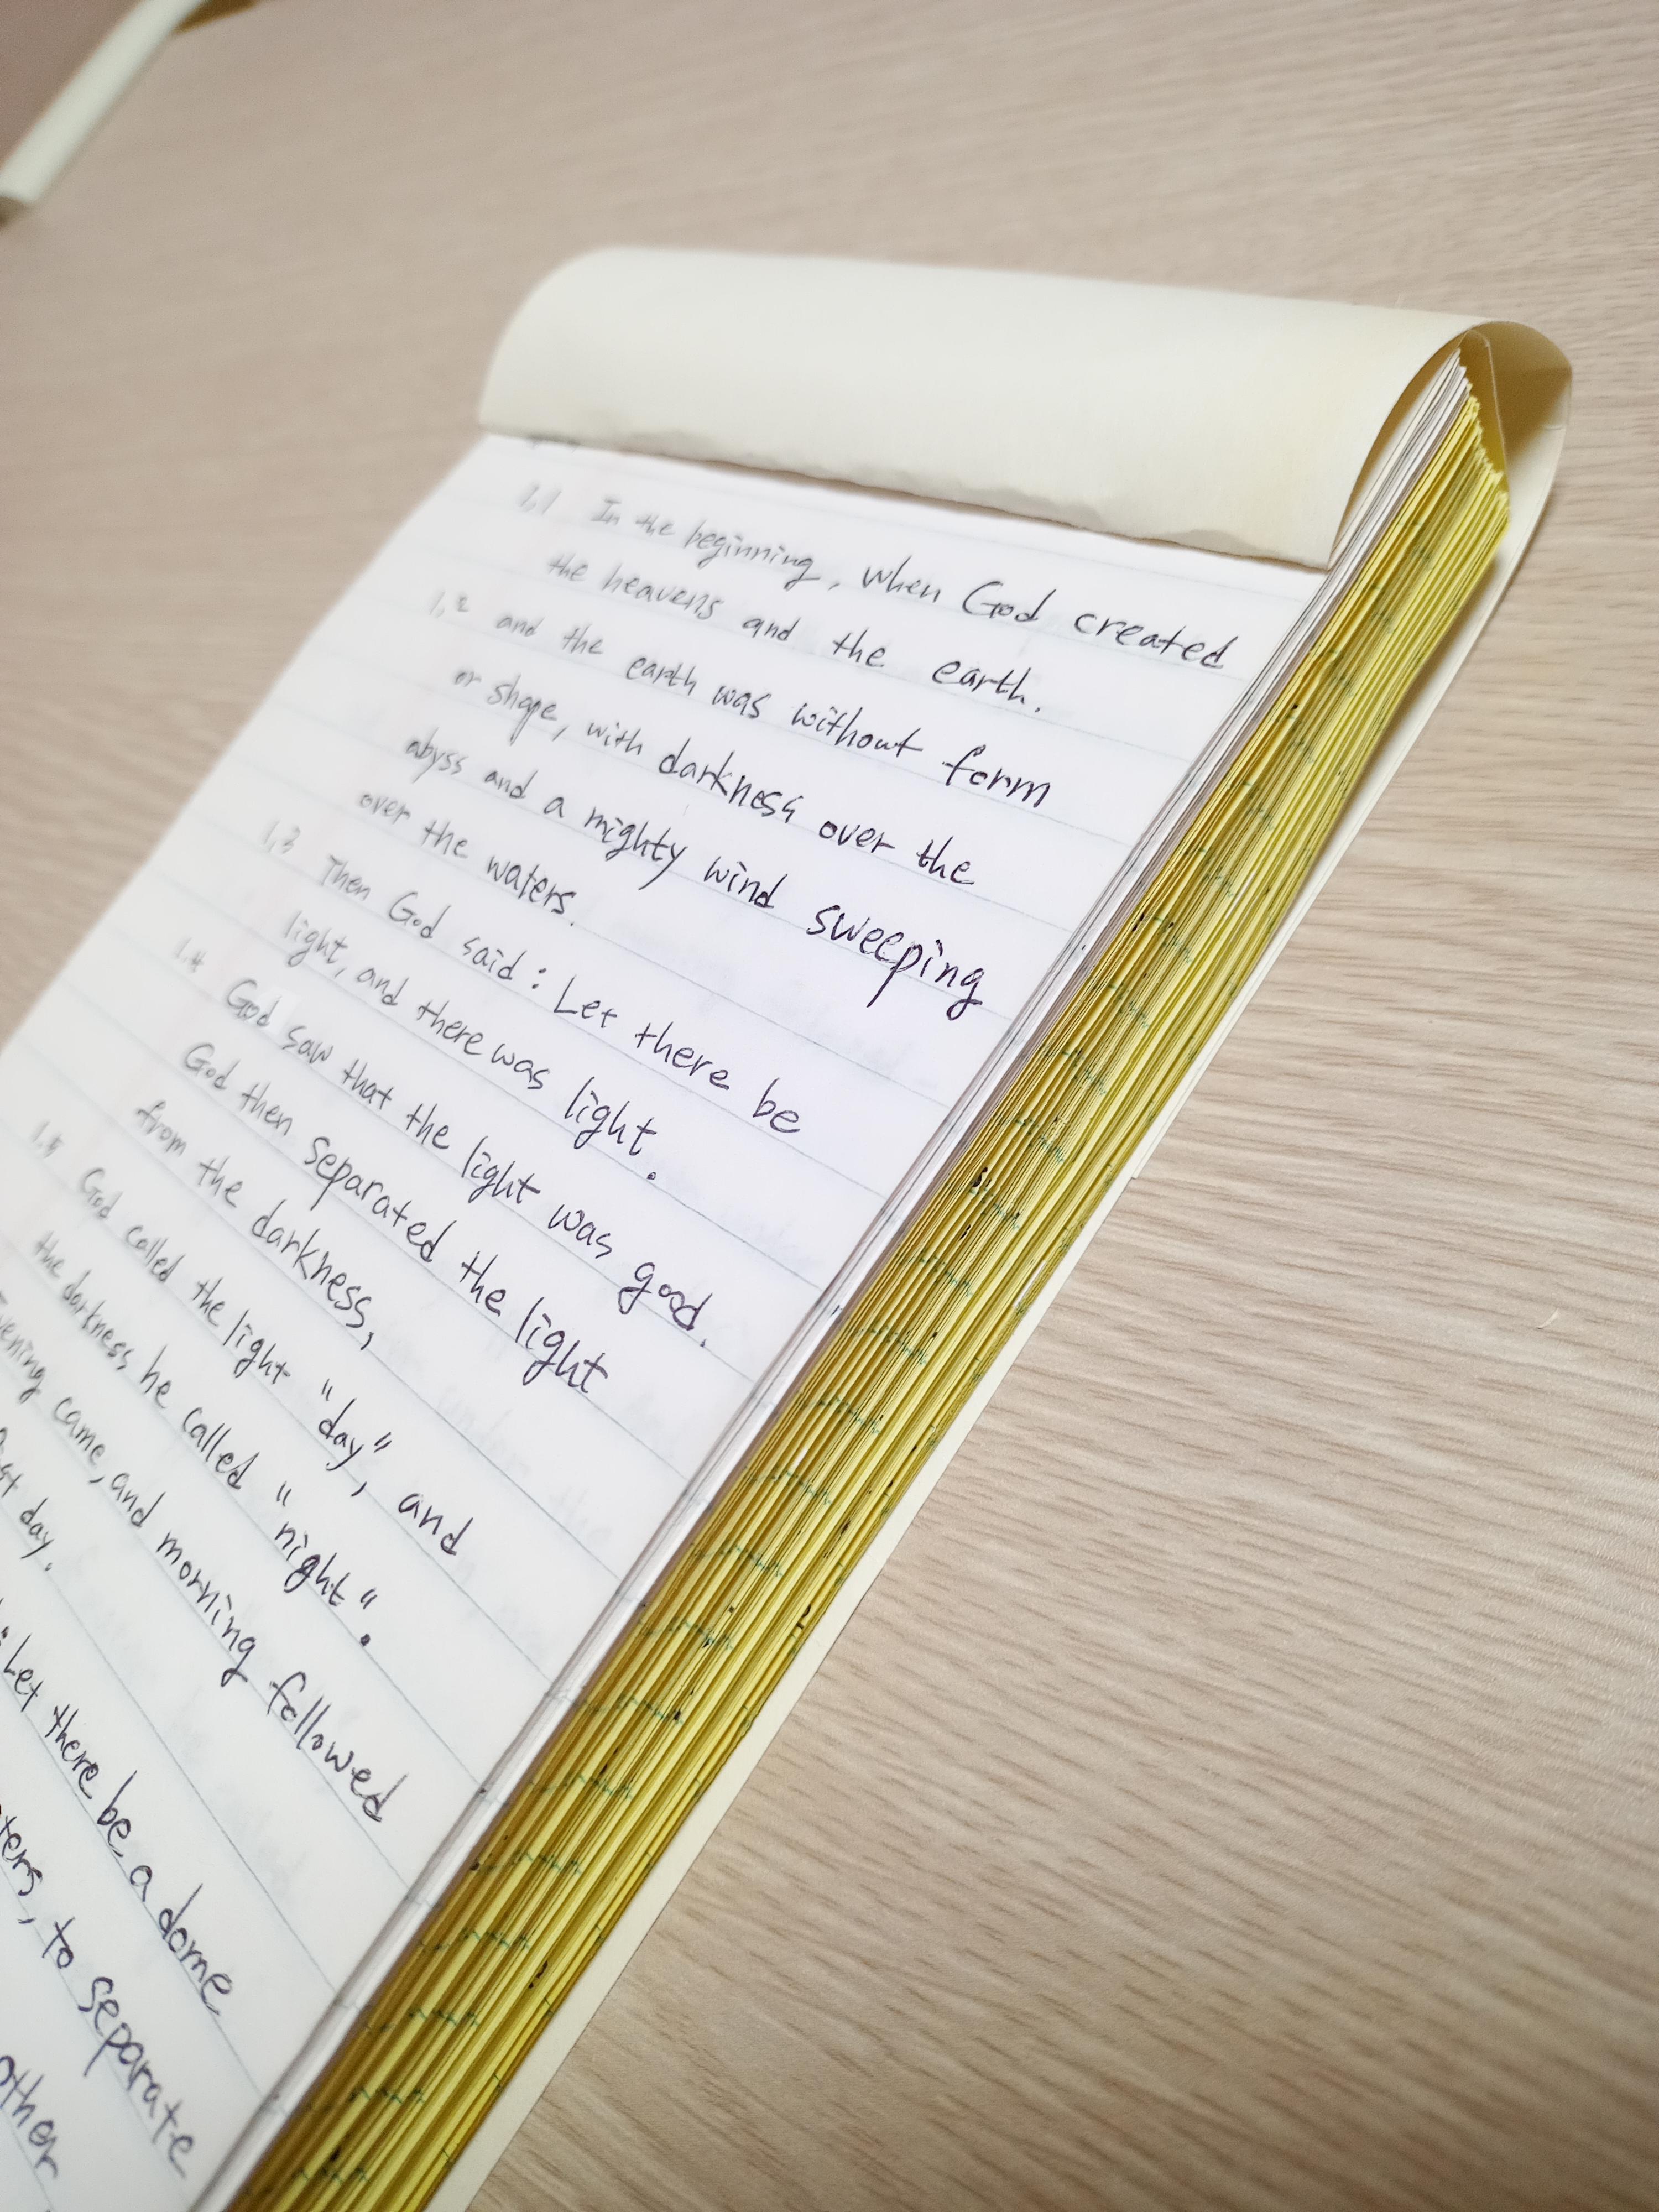 1,1 In the beginning, when God created
the heavens and the earth.
1,2 and the earth was without form
or shape, with darkness over the
abyss and a mighty wind sweeping
over the waters.
1,3 Then God said: Let there be
light, and there was light.
1.4 God saw that the light was good.
God then separated the light
from the darkness,
1.5 God called the light "day", and
the darkness he called "night".
Evening came, and morning followed
day.
: Let there be a dome
to separate
other